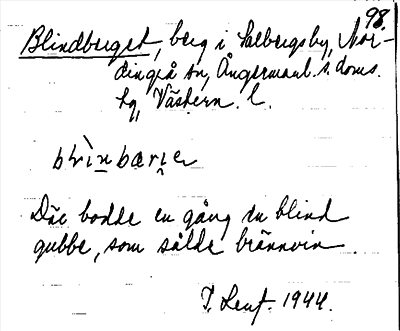 98.
Blindberget, berg i Salbergsby, Nor-
dingrå sn, Ångermanl. s. doms.
hg, Västern. l.
Där bodde en gång en blind
gubbe, som sålde brännvin
1944.